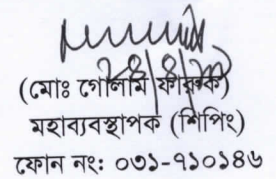 (মোঃ গোলাম ফারুক)
মহাব্যবস্থাপক (শিপিং)
ফোন নং: ০৩১-৭১০১৪৬